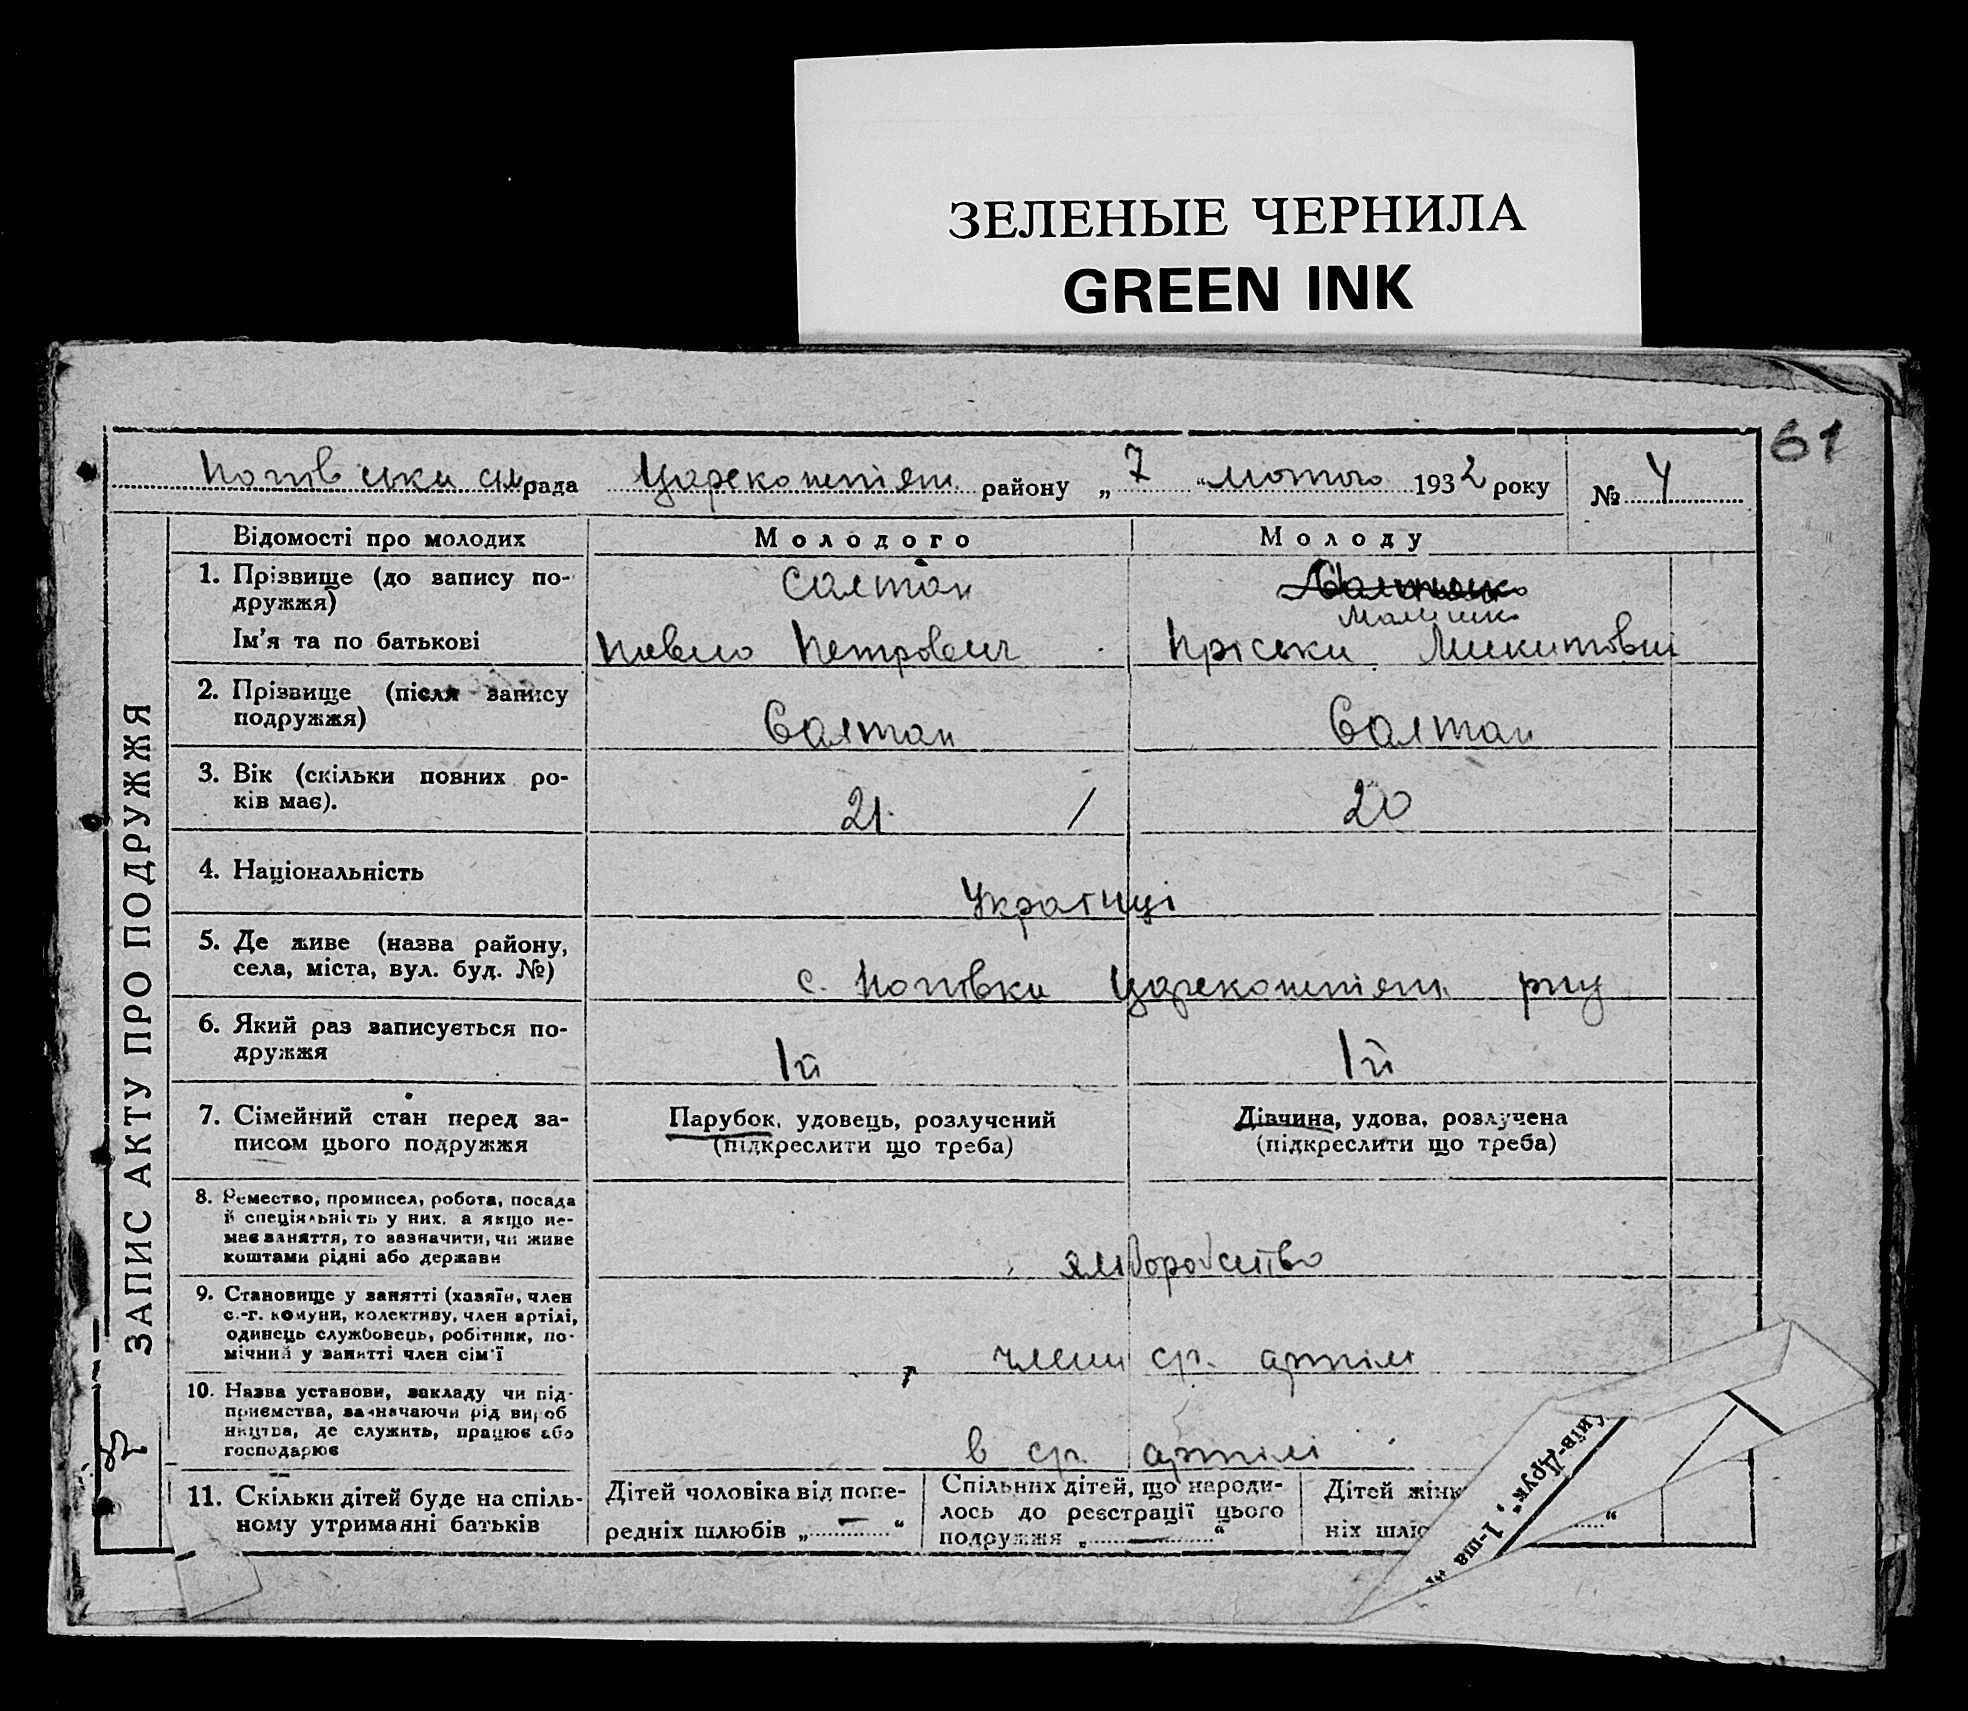 ЗЕЛЕНЫЕ ЧЕРНИЛА
GREEN INK
61
рада району „ 7 “ лютого 1932 року № 4
ЗАПИС АКТУ ПРО ПОДРУЖЖЯ
Відомості про молодих Молодого Молоду
1. Прізвище (до запису по-
дружжя)
Салтан
Малишко
Ім’я та по батькові Павло Петрович Пріська Микитовна
2. Прізвище (після запису
подружжя)
Салтан Салтан
3. Вік (скільки повних ро-
ків має).
21. / 20
4. Національність
Українці
5. Де живе (назва району,
села, міста, вул. буд. №)
с. рну
6. Який раз записується по-
дружжя
1й 1й
7. Сімейний стан перед за-
писом цього подружжя
Парубок, удовець, розлучений
(підкреслити що треба)
Дівчина, удова, розлучена
(підкреслити що треба)
8. Ремество, промисел, робота, посада
й спеціяльність у них, а якщо не-
має заняття, то зазначити, чи живе
коштами рідні або держави
9. Становище у занятті (хазяїн, член
с.-г. комуни, колективу, член артілі,
одинець службовець, робітник, по-
мічний у занятті член сім'ї
члени ср. артілі
10. Назва установи, закладу чи під-
приємства, зазначаючи рід вироб
ництва, де служить, працює або
господарює
в ср. артілі
11. Скільки дітей буде на спіль-
ному утриманні батьків
Дітей чоловіка від попе-
редніх шлюбів „ — “
Спільних дітей, що народи-
лось до реєстрації цього
подружжя „ — “
Дітей жінк
ніх шлю “
Київ-Друк“, 1-ша